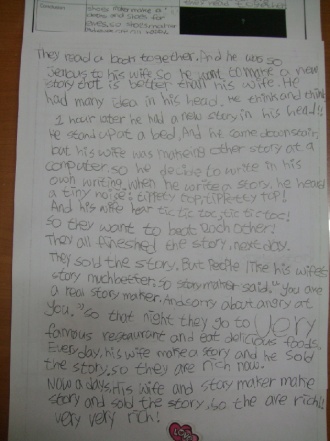 Conclusion
They read a book together. And he was so
jerous to his wife. so he want to make a new
story that is better than his wife. He
had many idea in his head. He think and think
1 hour later he had a new story in his head!!
He stand up at a bed. And he come downstair,
but his wife was makeing other story at a
computer. so he decide to write in his
own writing. when he write a story, he heard
a tiny noise! tippety top, tippety top!
And his wife hear tic tic toc, tic tic toc!
so they want to beat each other!
They all fineshed the story. next day.
They sold the story. But people like his wife's
story much better. so story maker said, "you are
a real story maker. And sorry about angry at
you." so that night they go to very
famous restaurant and eat delicious foods.
Everyday, his wife make a story and he sold
the story. so they are rich now.
Now a days, His wife and story maker make
story and sold the story. so the are rich!!
very very rich!